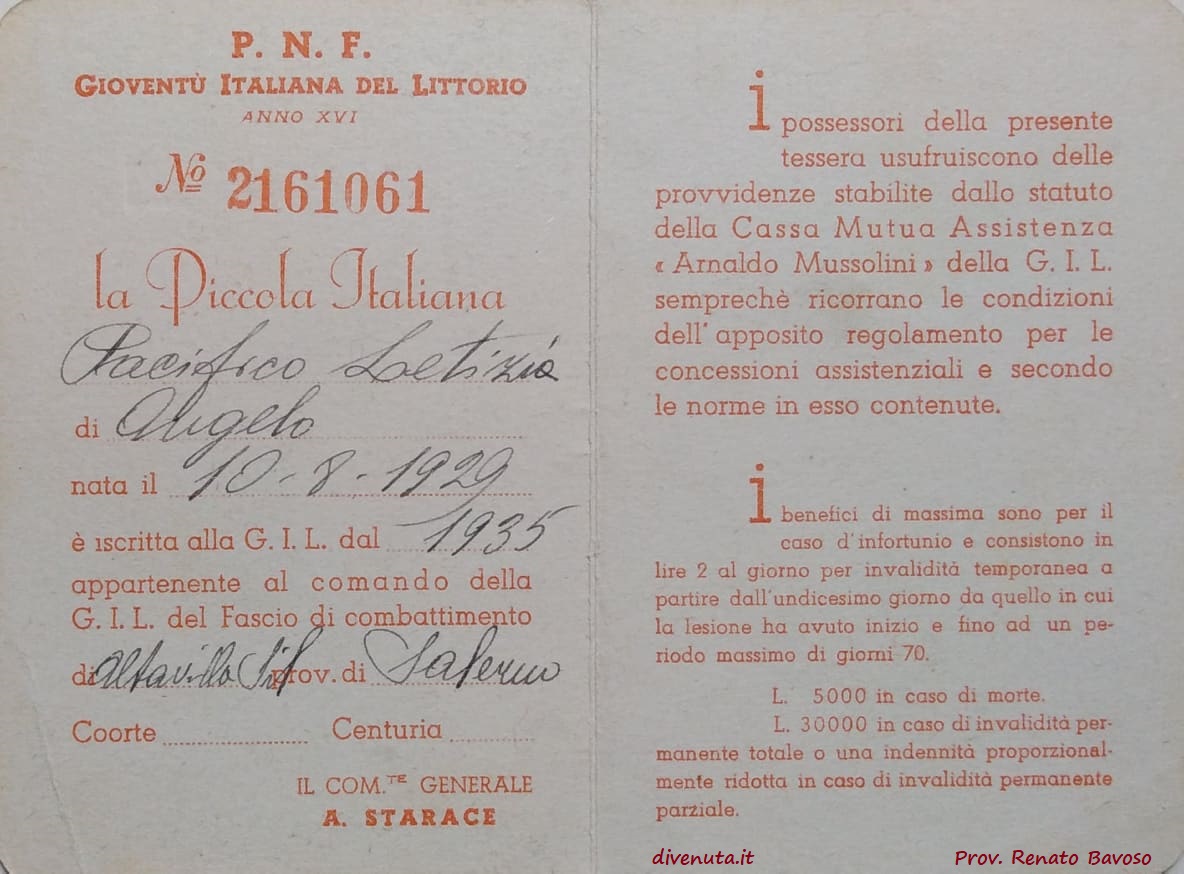 P. N. F.
GIOVENTÙ ITALIANA DEL LITTORIO
ANNO XVI
Nº 2161061
la Piccola Italiana
Pacifico Letizia
di Angelo
nata il 10-8-1929
è iscritta alla G. I. L. dal 1935
appartenente al comando della
G. I. L. del Fascio di combattimento
di Altavilla Sil prov. di Salerno
Coorte Centuria
IL COM.TE GENERALE
A. STARACE
i possessori della presente
tessera usufruiscono delle
provvidenze stabilite dallo statuto
della Cassa Mutua Assistenza
« Arnaldo Mussolini » della G. I. L.
semprechè ricorrano le condizioni
dell' apposito regolamento per le
concessioni assistenziali e secondo
le norme in esso contenute.
i benefici di massima sono per il
caso d'infortunio e consistono in
lire 2 al giorno per invalidità temporanea a
partire dall'undicesimo giorno da quello in cui
la lesione ha avuto inizio e fino ad un pe-
riodo massimo di giorni 70.
L. 5000 in caso di morte.
L. 30000 in caso di invalidità per-
manente totale o una indennità proporzional-
mente ridotta in caso di invalidità permanente
parziale.
divenuta.it
Prov. Renato Bavoso